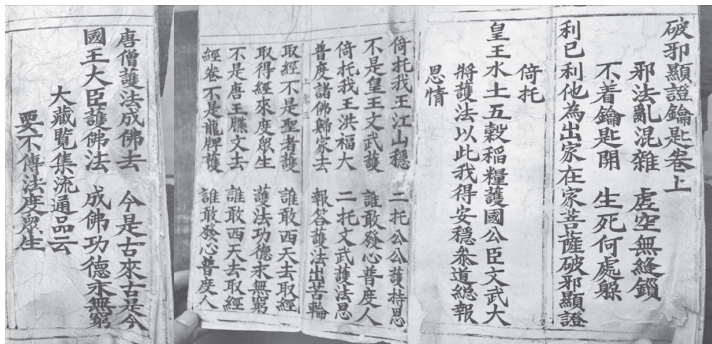 破邪顯證鑰匙卷上
邪法亂混雜　虛空無縫鎖
不着鑰匙開　生死何處躲
利己利他為出家在家菩薩破邪顯證
倚托
皇王水土五穀稻糧護國公臣文武大
將護法以此我得安穩叅道總報
恩情
倚托我王江山穩　二托公公護持恩
不是皇王文武護　誰敢發心普度人
倚托我王洪福大　二托文武護法恩
普度諸佛鄉家去　報荅護法出苦輪
取經不是聖者護　誰敢西天去取經
取得經來度眾生　護法功德永無窮
不是唐王牒文去　誰敢西天去取經
經卷不是龍牌護　誰敢發心普度人
唐僧護法成佛去　今是古來古是今
國王大臣護佛法　成佛功德永無窮
大藏覽集流通品云
要不傳法度眾生